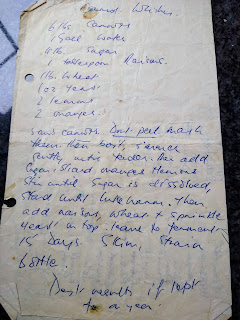 Carrot Whisky.
6 lbs Carrots
1 Gall Water
4 lb Sugar
1 tablespoon Raisins.
1 lb Wheat
1 oz Yeast
2 lemons
2 oranges
carrots Dont peel mash
them then boil, simmer
gently until tender. Then add
Sugar, sliced oranges & lemons
Stir until Sugar is dissolved,
stand until lukewarm. Then
add raisins, wheat & sprinkle
yeast on top. leave to ferment
15 Days. Skim, Strain
bottle.
Best results if kept
for a year.